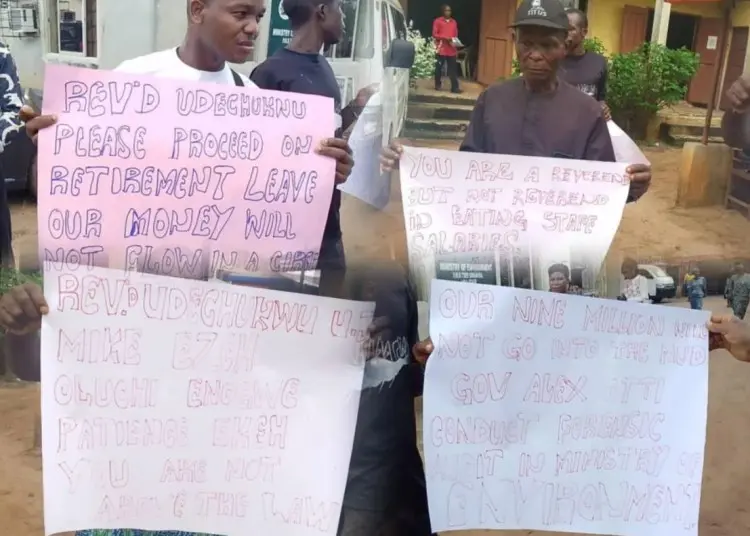 REV'D UDECHUKWU
PLEASE PROCEED ON
RETIREMENT LEAVE
OUR MONEY WILL
NOT FLOW IN A
YOU ARE A REVEREND
BUT NOT REVEREND
IN EATING STAFF
SALARIES
MINISTRY OF ENVIRONMENT
REV'D UDECHUKWU
MIKE EZEH
OLUCHI
PATIENCE EMEH
YOU ARE NOT
ABOVE THE LAW
OUR NINE MILLION WILL
NOT GO INTO THE MUD
GOV ALEX OTTI
CONDUCT FORENSIC
AUDIT IN MINISTRY OF
ENVIRONMENT